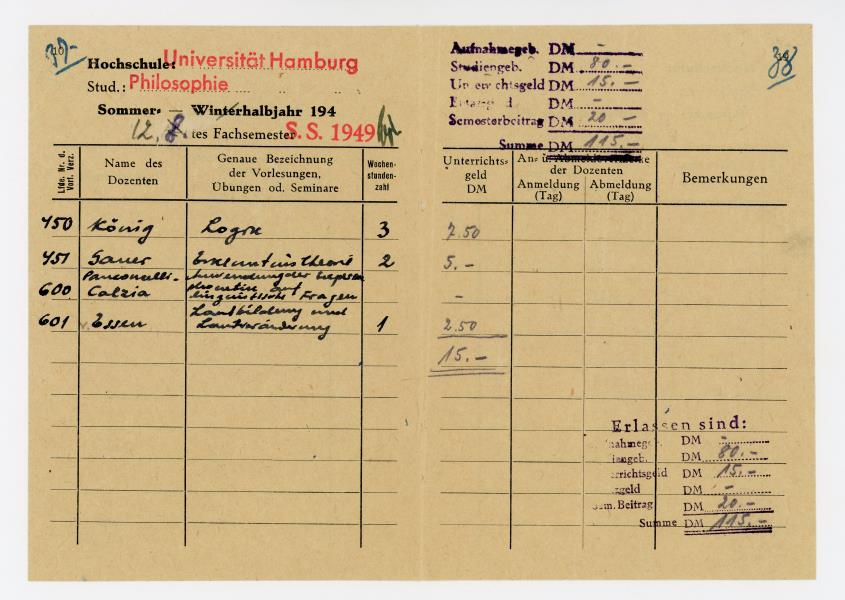 39
Hochschule: Universität Hamburg
Stud.: Philosophie
Sommer- — Winterhalbjahr 194
12. 8. tes Fachsemester S.S. 1949
Lfde. Nr. d. Vorl. Verz.
Name des Dozenten
Genaue Bezeichnung der Vorlesungen, Übungen od. Seminare
Wochen-stunden-zahl
450 König Logik 3
451 Sauer Erkenntnistheorie 2
600 Panconcelli-Calzia Anwendung der Experim phonetik auf linguistische Fragen
601 v. Essen Lautbildung und Lautveränderung 1
38
Aufnahmegeb. DM -
Studiengeb. DM 80.-
Unterrichtsgeld DM 15.-
Ersatzgeld DM -
Semesterbeitrag DM 20 -
Summe DM 115.-
Unterrichts-geld DM
An- u. Abmeldevermerke der Dozenten
Anmeldung (Tag)
Abmeldung (Tag)
Bemerkungen
7.50
5.-
-
2.50
15.-
Erlassen sind:
nahmege. DM -
iengeb. DM 80.-
rrichtsgeld DM 15.-
zgeld DM -
Sem. Beitrag DM 20.-
Summe DM 115.-